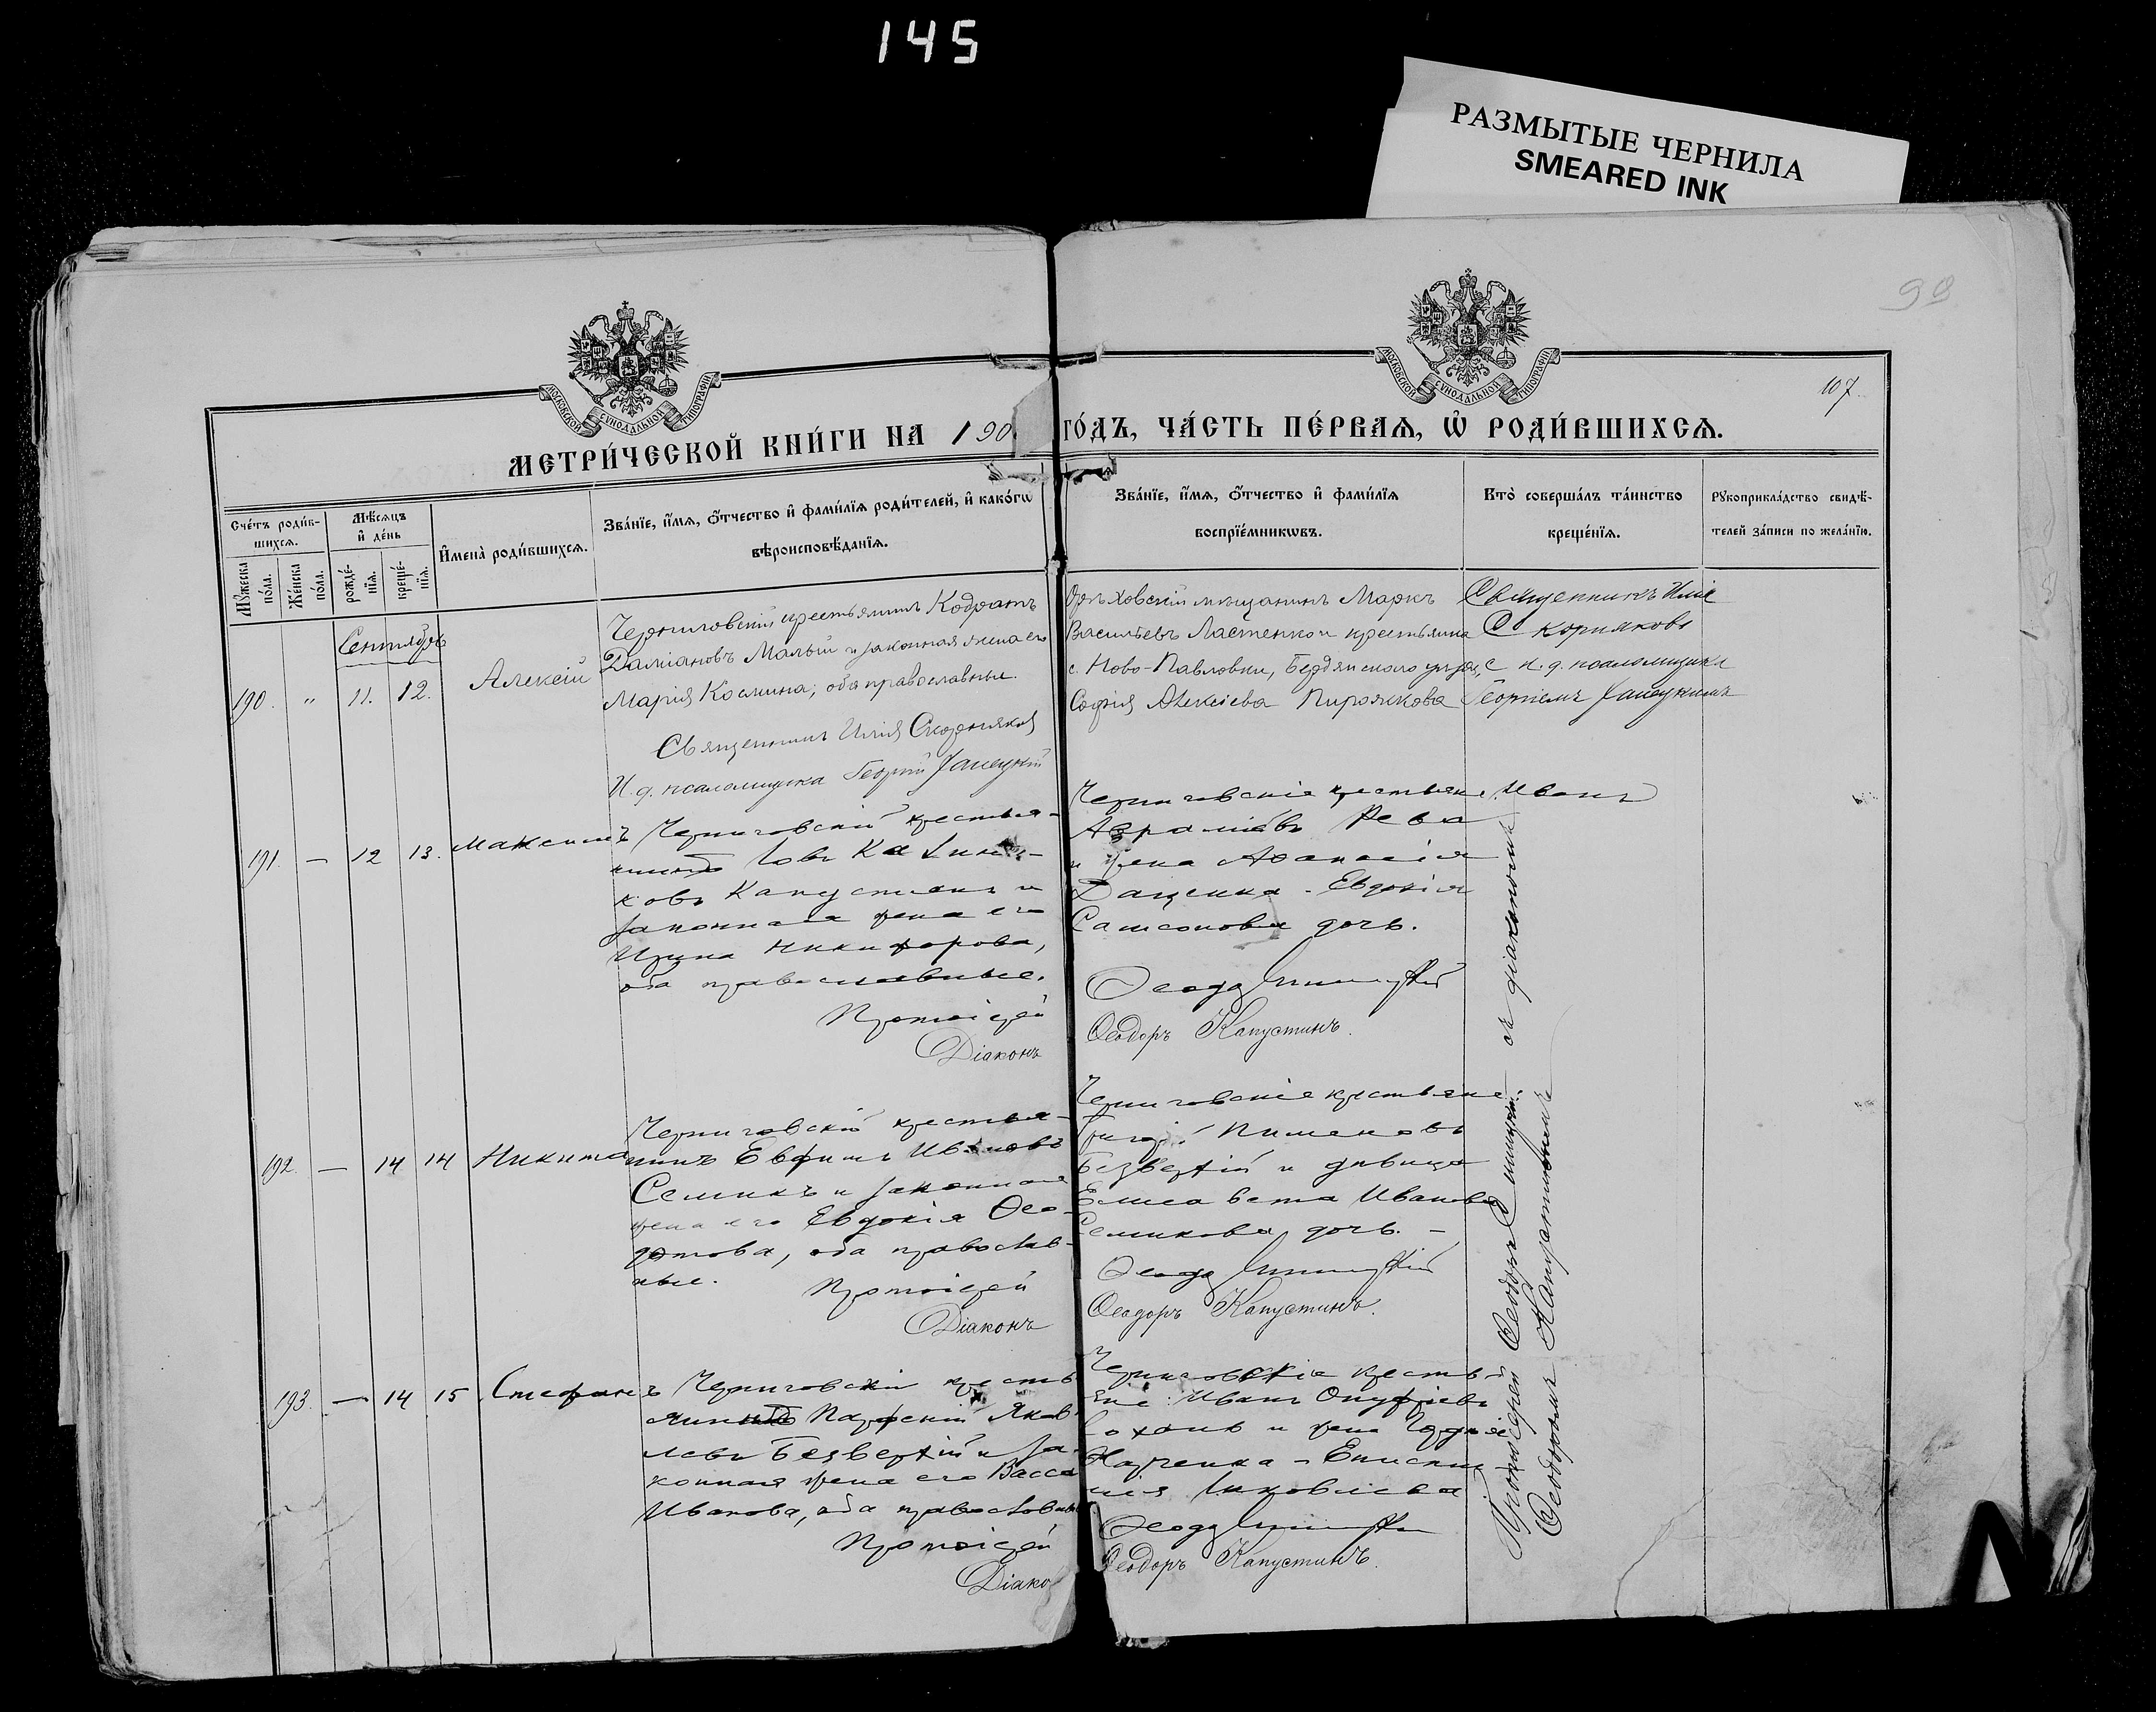 145
РАЗМЫТЫЕ ЧЕРНИЛА
SMEARED INK
99
107.
МОСКОВСКОЙ СѴНОДАЛЬНОЙ ТИПОГРАФІИ
МОСКОВСКОЙ СѴНОДАЛЬНОЙ ТИПОГРАФІИ
МЕТРИ́ЧЕСКОЙ КНИ́ГИ НА 190 ГО́ДЪ, ЧА́СТЬ ПЕ́РВАѦ, Ѽ РОДИ́ВШИХСѦ.
Сче́тъ роди́в-
шихсѧ.
Мꙋ́жеска
по́ла.
Же́нска
по́ла.
Мѣ́сѧцъ
и҆ де́нь
рожде́-
нїѧ.
креще́-
нїѧ.
И҆мена̀ роди́вшихсѧ.
Зва́нїе, и҆́мѧ, ѻ҆́тчество и҆ фами́лїѧ роди́телей, и҆ како́гѡ
вѣроисповѣ́данїѧ.
Зва́нїе, и҆́мѧ, ѻ҆́тчество и҆ фами́лїѧ
воспрїе́мникѡвъ.
Кто̀ соверша́лъ та́инство
креще́нїѧ.
Рꙋкоприкла́дство свидѣ́-
телей за́писи по жела́нїю.
Сентябрь
190. " 11. 12. Алексій
Черниговскій крестьянинъ Кодратъ
Даміановъ Малый и законная жена его
Марія Космина; оба православные.
Священникъ Илія Скорняковъ
И. д. псаломщика Георгій
Орѣховскій мѣщанинъ Маркъ
Васильевъ Ластенко и крестьянка
с. Ново-Павловки, Бердянскаго уѣзда,
Софія Алексіева Пирожкова
Священникъ Илія
Скорняковъ
с и. д. псаломщика
Георгіемъ
191. — 12 13. Максимъ
Черниговскій крестья-
нинъ Іовъ
ковъ Капустянъ и
законная жена его
Ирина Никифорова,
оба православные.
Протоіерей
Діаконъ
Черниговскіе крестьяне: Иванъ
Авраміевъ Рева
и жена Афанасія
Даценка - Евдокія
Самсонова дочь.
Ѳеодоръ
Ѳеодоръ Капустинъ.
192. — 14 14 Никита
Черниговскій крестья-
нинъ Евфимъ Ивановъ
Семикъ и законная
жена его Евдокія Ѳео-
дотова, оба православ-
ные.
Протоіерей
Діаконъ
Черниговскіе крестьяне
Григорій Пименовъ
Безверхій и дѣвица
Елисавета Иванова
Семикова дочь. —
Ѳеодоръ
Ѳеодоръ Капустинъ.
193. — 14 15 Стефанъ
Черниговскій кресть-
янинъ Парфеній Яков-
левъ Безверхій и за-
конная жена его Васса
Иванова, оба православные
Протоіерей
Діако
Черниговскіе кресть-
яне: Иванъ Онуфріевъ
и жена
Харченка - Епистим-
ія Іаковлева
Ѳеодоръ
Ѳеодоръ Капустинъ.
Протоіерей Ѳеодоръ съ діакономъ
Ѳеодоромъ Капустинымъ